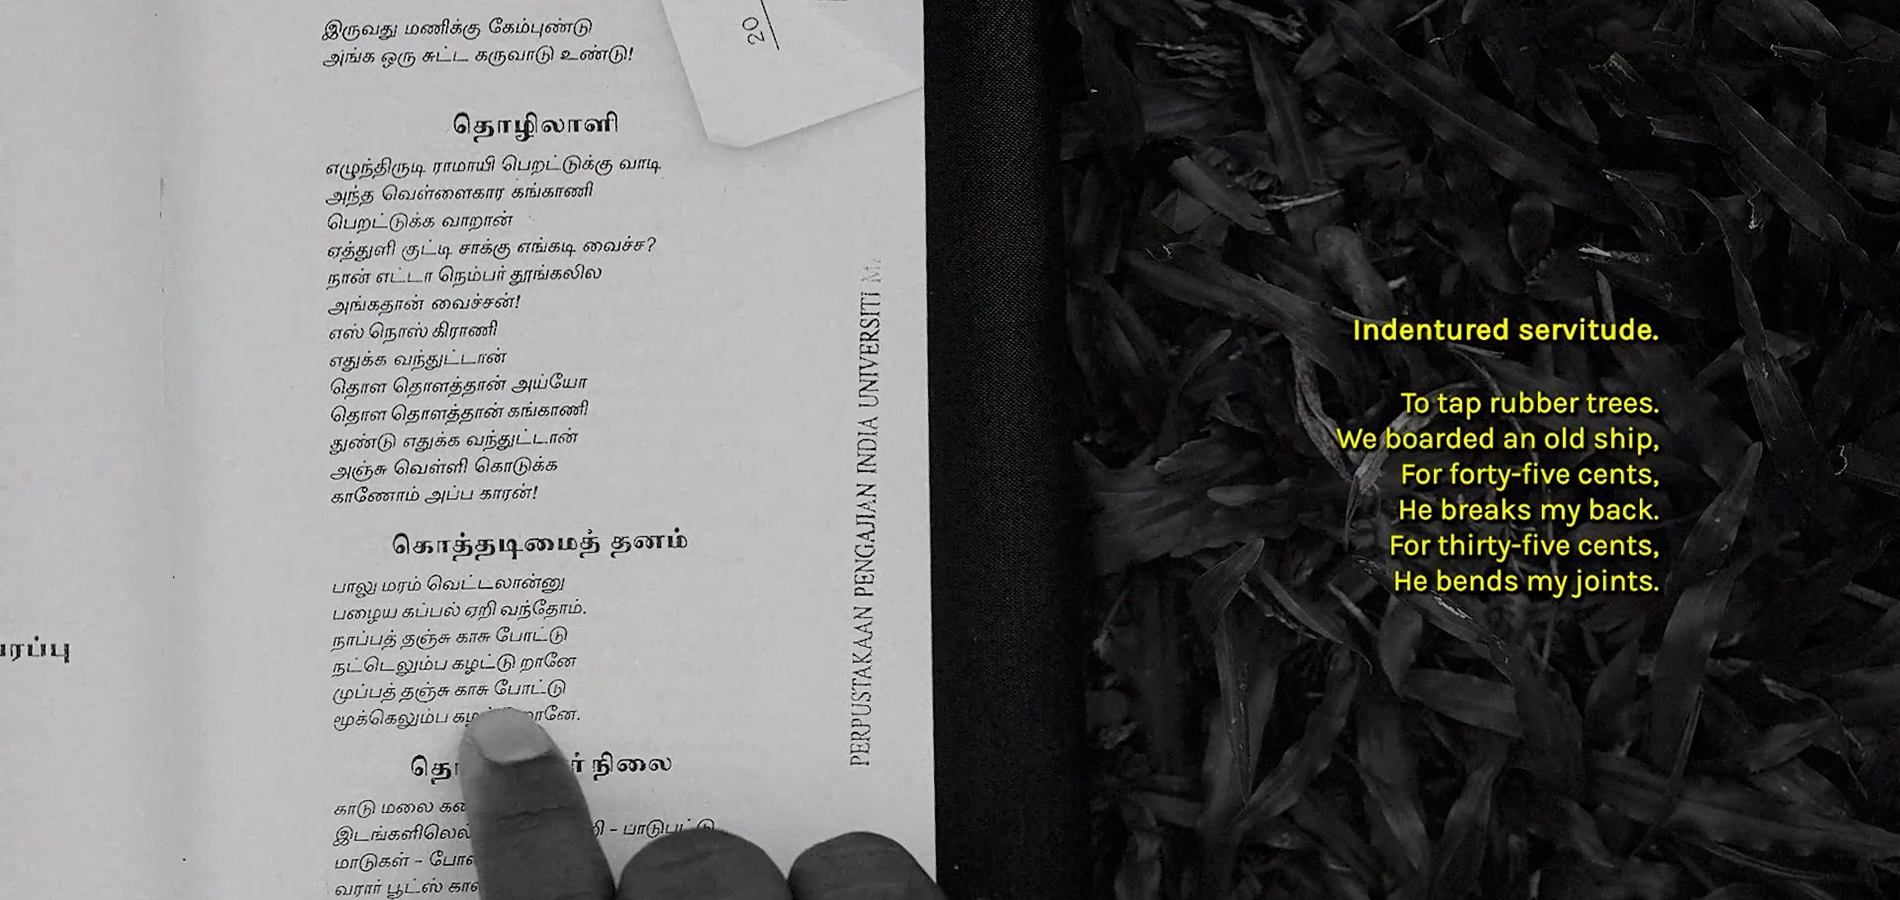 இருவது மணிக்கு கேம்புண்டு
அங்க ஒரு சுட்ட கருவாடு உண்டு!
20
தொழிலாளி
எழுந்திருடி ராமாயி பெறட்டுக்கு வாடி
அந்த வெள்ளைகார கங்காணி
பெறட்டுக்க வாறான்
ஏத்துளி குட்டி சாக்கு எங்கடி வைச்ச?
நான் எட்டா நெம்பர் தூங்கலில
அங்கதான் வைச்சன்!
எஸ் நொஸ் கிராணி
எதுக்க வந்துட்டான்
தொள தொளத்தான் அய்யோ
தொள தொளத்தான் கங்காணி
துண்டு எதுக்க வந்துட்டான்
அஞ்சு வெள்ளி கொடுக்க
காணோம் அப்ப காரன்!
கொத்தடிமைத் தனம்
பாலு மரம் வெட்டலான்னு
பழைய கப்பல் ஏறி வந்தோம்.
நாப்பத் தஞ்சு காசு போட்டு
நட்டெலும்ப கழட்டு றானே
முப்பத் தஞ்சு காசு போட்டு
மூக்கெலும்ப
நிலை
காடு மலை
பாடுபட்டு
மாடுகள் –
வரார் பூட்ஸ்
PERPUSTAKAAN PENGAJIAN INDIA UNIVERSITI
Indentured servitude.
To tap rubber trees.
We boarded an old ship,
For forty-five cents,
He breaks my back.
For thirty-five cents,
He bends my joints.